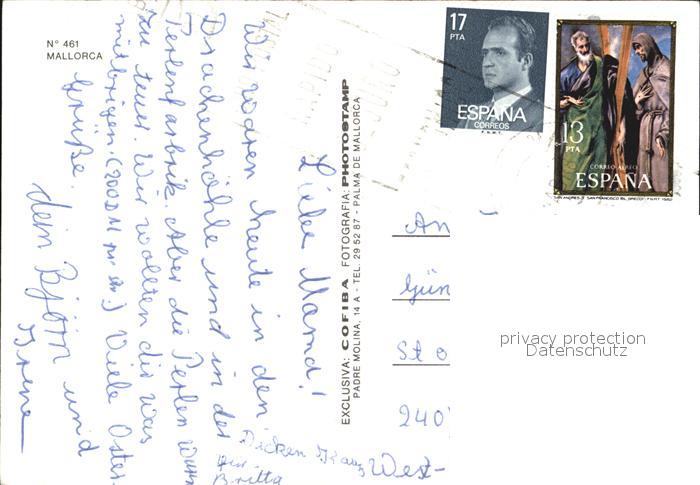 Nº 461
MALLORCA
Liebe Mama!
Wir waren heute in den
Drachenhöhle und in der
Perlenfabrik. Aber die Perlen waren
zu teuer. Wir wollten dir was
mitbringen. (200DM) Viele Oster-
Grüße.
dein Björn und
Irene
Dicken Kuss
Britta
EXCLUSIVA: COFIBA FOTOGRAFIA: PHOTOSTAMP
PADRE MOLINA, 14 A - TEL. 29 52 87 - PALMA DE MALLORCA
17
PTA
ESPAÑA
CORREOS
F.N.M.T.
13
PTA
CORREO AEREO
ESPAÑA
SAN ANDRES Y SAN FRANCISCO (EL GRECO) F.N.M.T. 1982
An
Gün
Sto
240
West-
privacy protection
Datenschutz